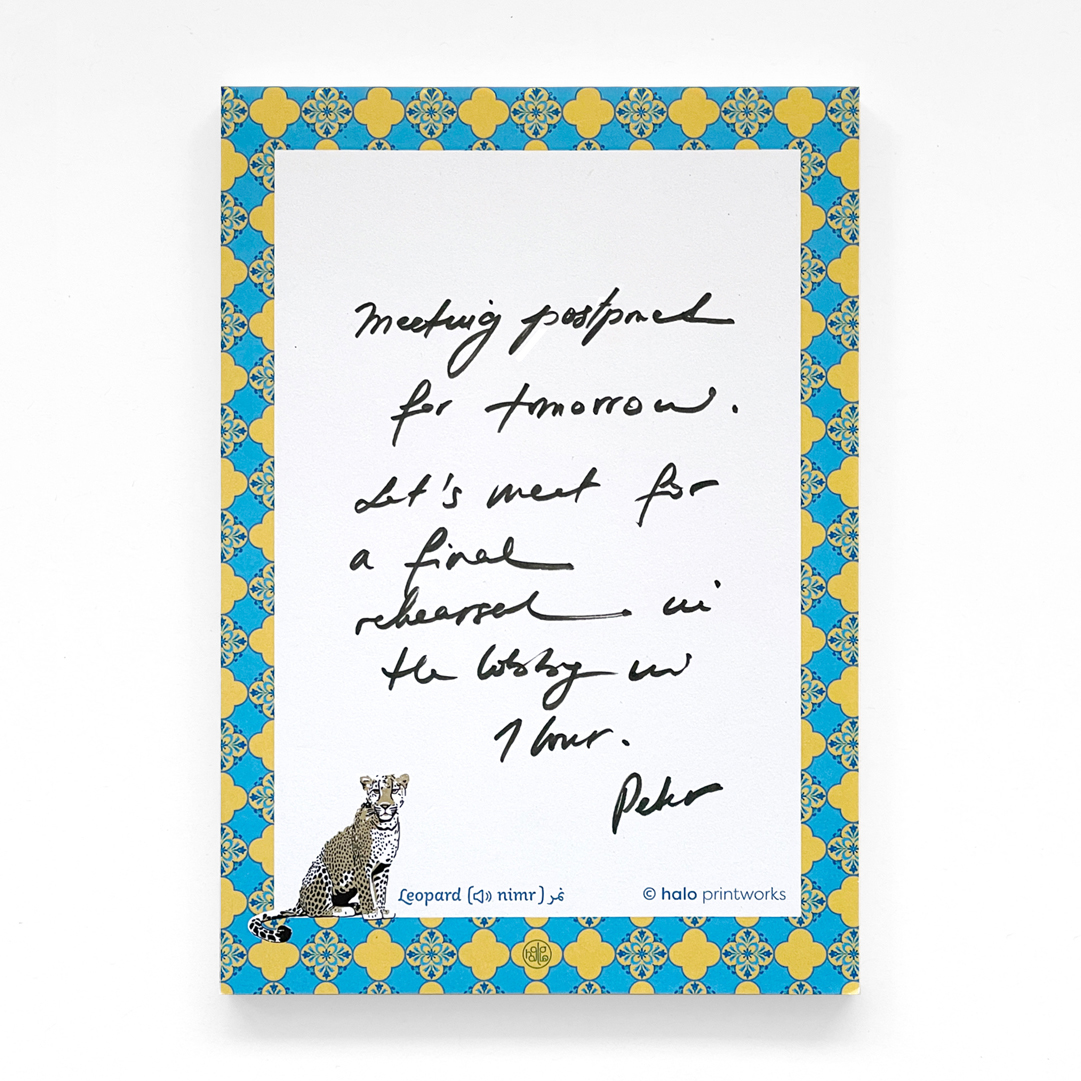 Meeting postponed
for tomorrow.
Let's meet for
a final
rehearsal in
the lobby in
1 hour.
Peter
Leopard (nimr) نمر
© halo printworks
halo